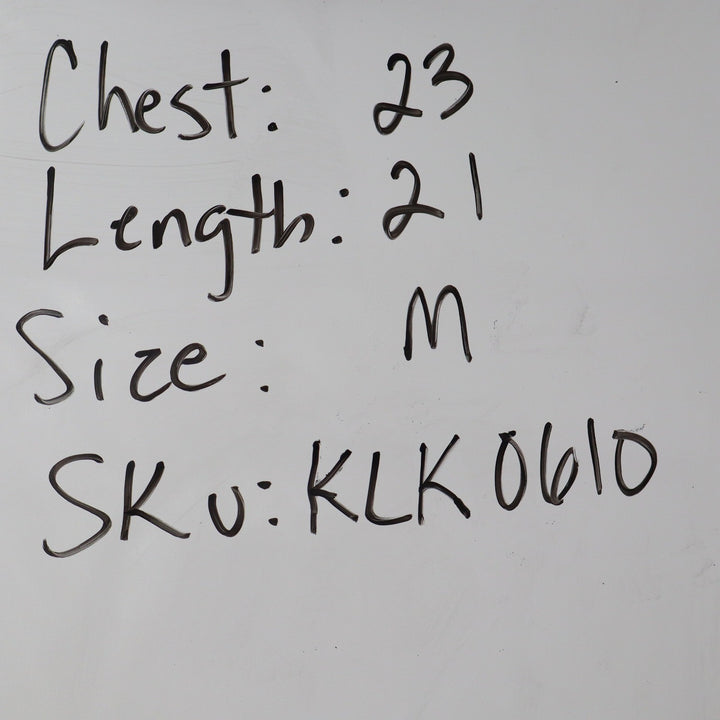 Chest: 23
Length: 21
Size: M
SKU: KLK0610